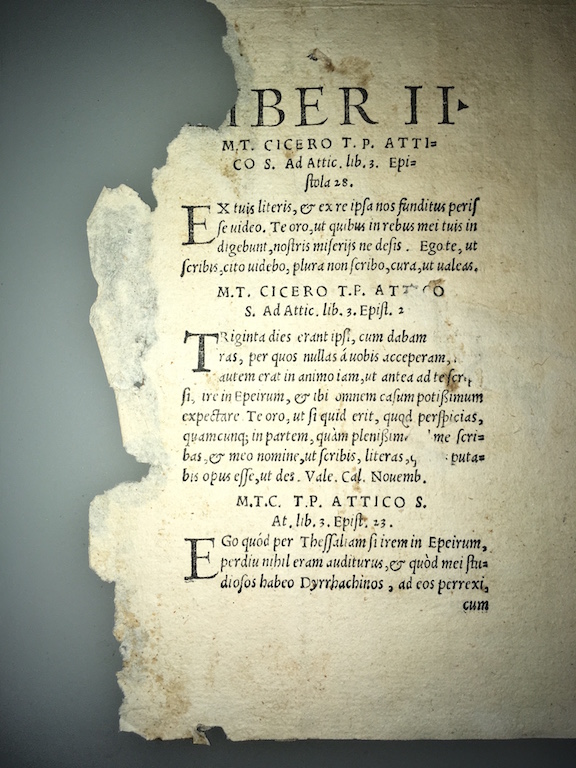 IBER II
M.T. CICERO T. P. ATTI=
CO S. Ad Attic. lib. 3. Epi=
ſtola 28.
EX tuis literis, & ex re ipſa nos funditus periſ
ſe uideo. Te oro, ut quibus in rebus mei tuis in
digebunt, noſtris miſerijs ne deſis. Ego te, ut
ſcribis, cito uidebo, plura non ſcribo, cura, ut ualeas.
M.T. CICERO T.P. ATT CO
S. Ad Attic. lib. 3. Epiſt. 2
TRiginta dies erant ipſi, cum dabam
ras, per quos nullas á uobis acceperam,
autem erat in animo iam, ut antea ad te ſcri
ſi, ire in Epeirum, & ibi omnem caſum potißimum
expectare Te oro, ut ſi quid erit, quod perſpicias,
quamcunq; in partem, quàm plenißim me ſcri=
bas, & meo nomine, ut ſcribis, literas, q puta=
bis opus eſſe, ut des. Vale. Cal. Nouemb.
M.T.C. T.P. ATTICO S.
At. lib. 3. Epiſt. 23.
EGo quòd per Theſſaliam ſi irem in Epeirum,
perdiu nihil eram auditurus, & quòd mei ſtu=
dioſos habeo Dyrrhachinos, ad eos perrexi,
cum